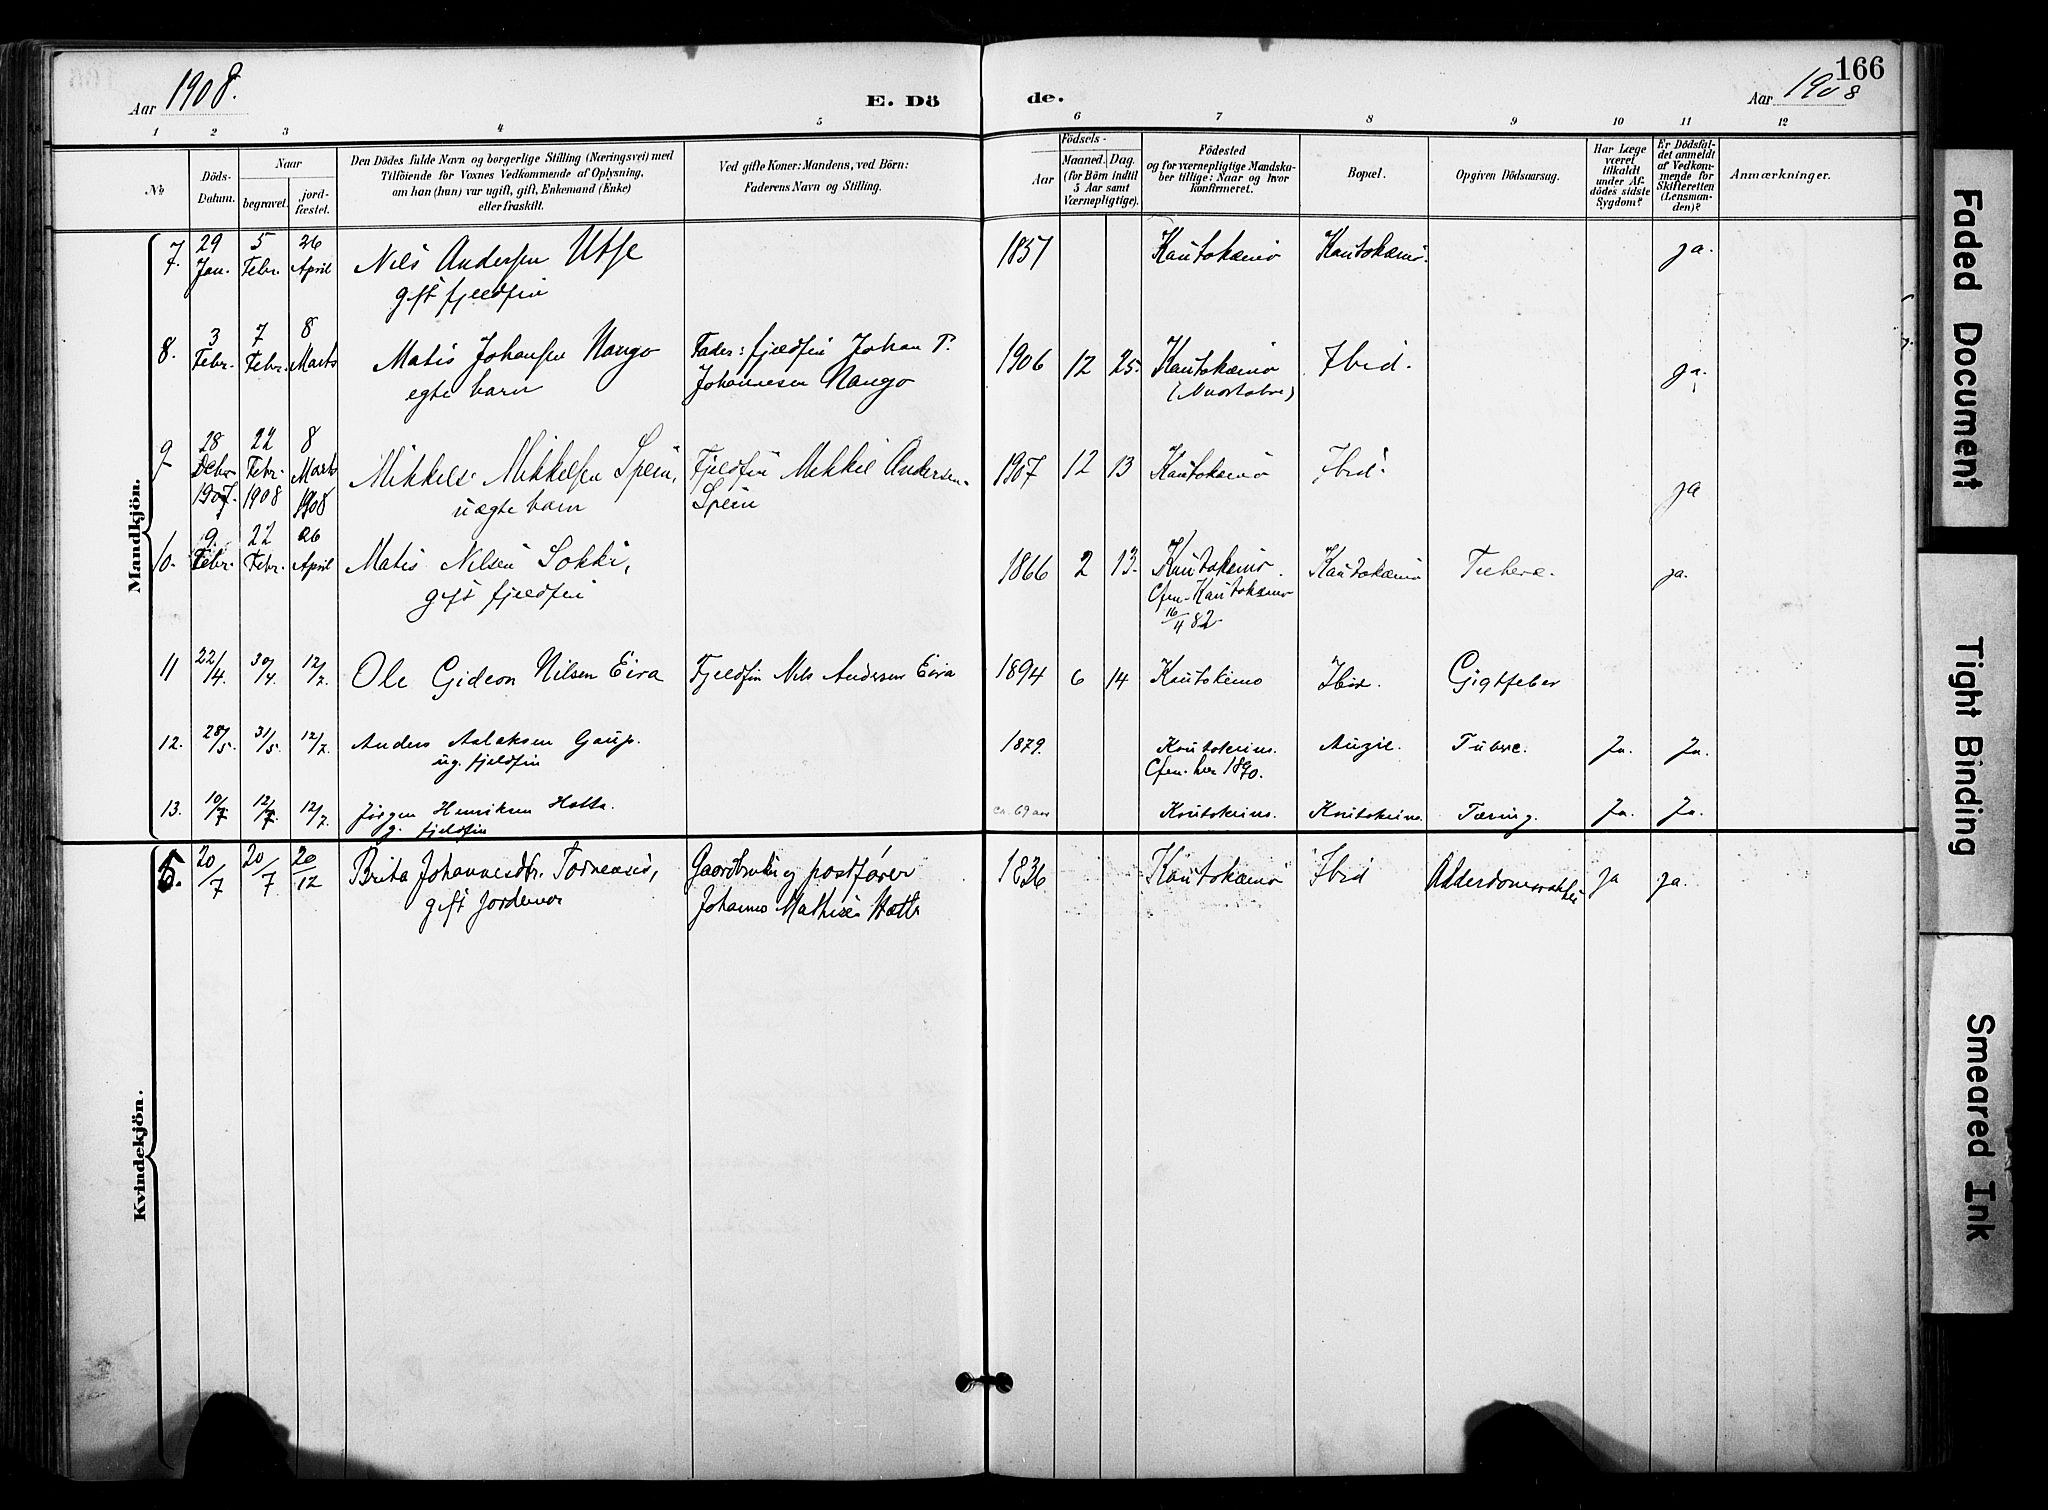 Aar 1908.
E. Dö
de.
166
Aar 1908
1 2 3 4 5
6 7 8 9 10 11 12
No
Döds-Datum.
Naar
begravet.
jord-fæstet.
Den Dödes fulde Navn og borgerlige Stilling (Næringsvei) med
Tilföiende for Voxnes Vedkommende af Oplysning,
om han (hun) var ugift, gift, Enkemand (Enke)
eller fraskilt.
Ved gifte Koner: Mandens, ved Börn:
Faderens Navn og Stilling.
Födsels-
Aar
Maaned. Dag.
(for Börn indtil
5 Aar samt
Værnepligtige).
Födested
og for værnepligtige Mandska-
ber tillige: Naar og hvor
konfirmeret.
Bopæl.
Opgiven Dödsaarsag.
Har Læge
været
tilkaldt
under Af-
dödes sidste
Sygdom?
Er Dödsfal-
det anmeldt
af Vedkom-
mende for
Skifteretten
(Lensman-
den)?
Anmærkninger.
Mandkjön.
7. 29 Jan. 5 Febr. 26 April Nils Andersen Utse 1857 Kautokæino Kautokæino. ja.
gift fjeldfin
8. 3 Febr. 7 Febr. 8 Marts Matis Johansen Nango Fader: fjeldfin Johan P. 1906 12 25. Kautokæino Ibid. ja.
egte barn Johannesen Nango
9 28 Debr 1907. 22 Febr. 1908 8 Marts 1908 Mikkel Mikkelsen Spein, Fjeldfin Mikkel Andersen 1907 12 13 Kautokæino Ibid. ja
uægte barn Spein
10. 9. Febr. 22 Febr. 26 April Matis Nilsen Sokki, 1866 2 13. Kautokæino. Kautokæino Tuberc. ja.
gift fjeldfin Cfen. Kautokæino
16/4 82
11 22/4. 30/4. 12/7. Ole Gideon Nilsen Eira Fjeldfin Nils Andersen Eira 1894 6 14 Kautokeino Ibid. Gigtfeber
12. 28/5. 31/5. 12/7. Anders Aslaksen Gaup. 1879. Koutokeino. Auzie. Tuberc. Ja. Ja.
ug. fjeldfin Cfen. her 1890.
13. 10/7. 12/7. 12/7. Jörgen Henriksen Hatta. ca. 69 aar Koutokeino. Koutokeino. Tæring. Ja. Ja.
g. fjeldfin
Kvindekjön.
5. 20/7 20/7 20/12 Brita Johannesdtr. Tornensis, Gaardbruker og postfører 1836 Kautokæino Ibid Alderdomssvakhet ja ja.
gift Johannes Mathisen Hætta
Faded Document
Tight Binding
Smeared Ink